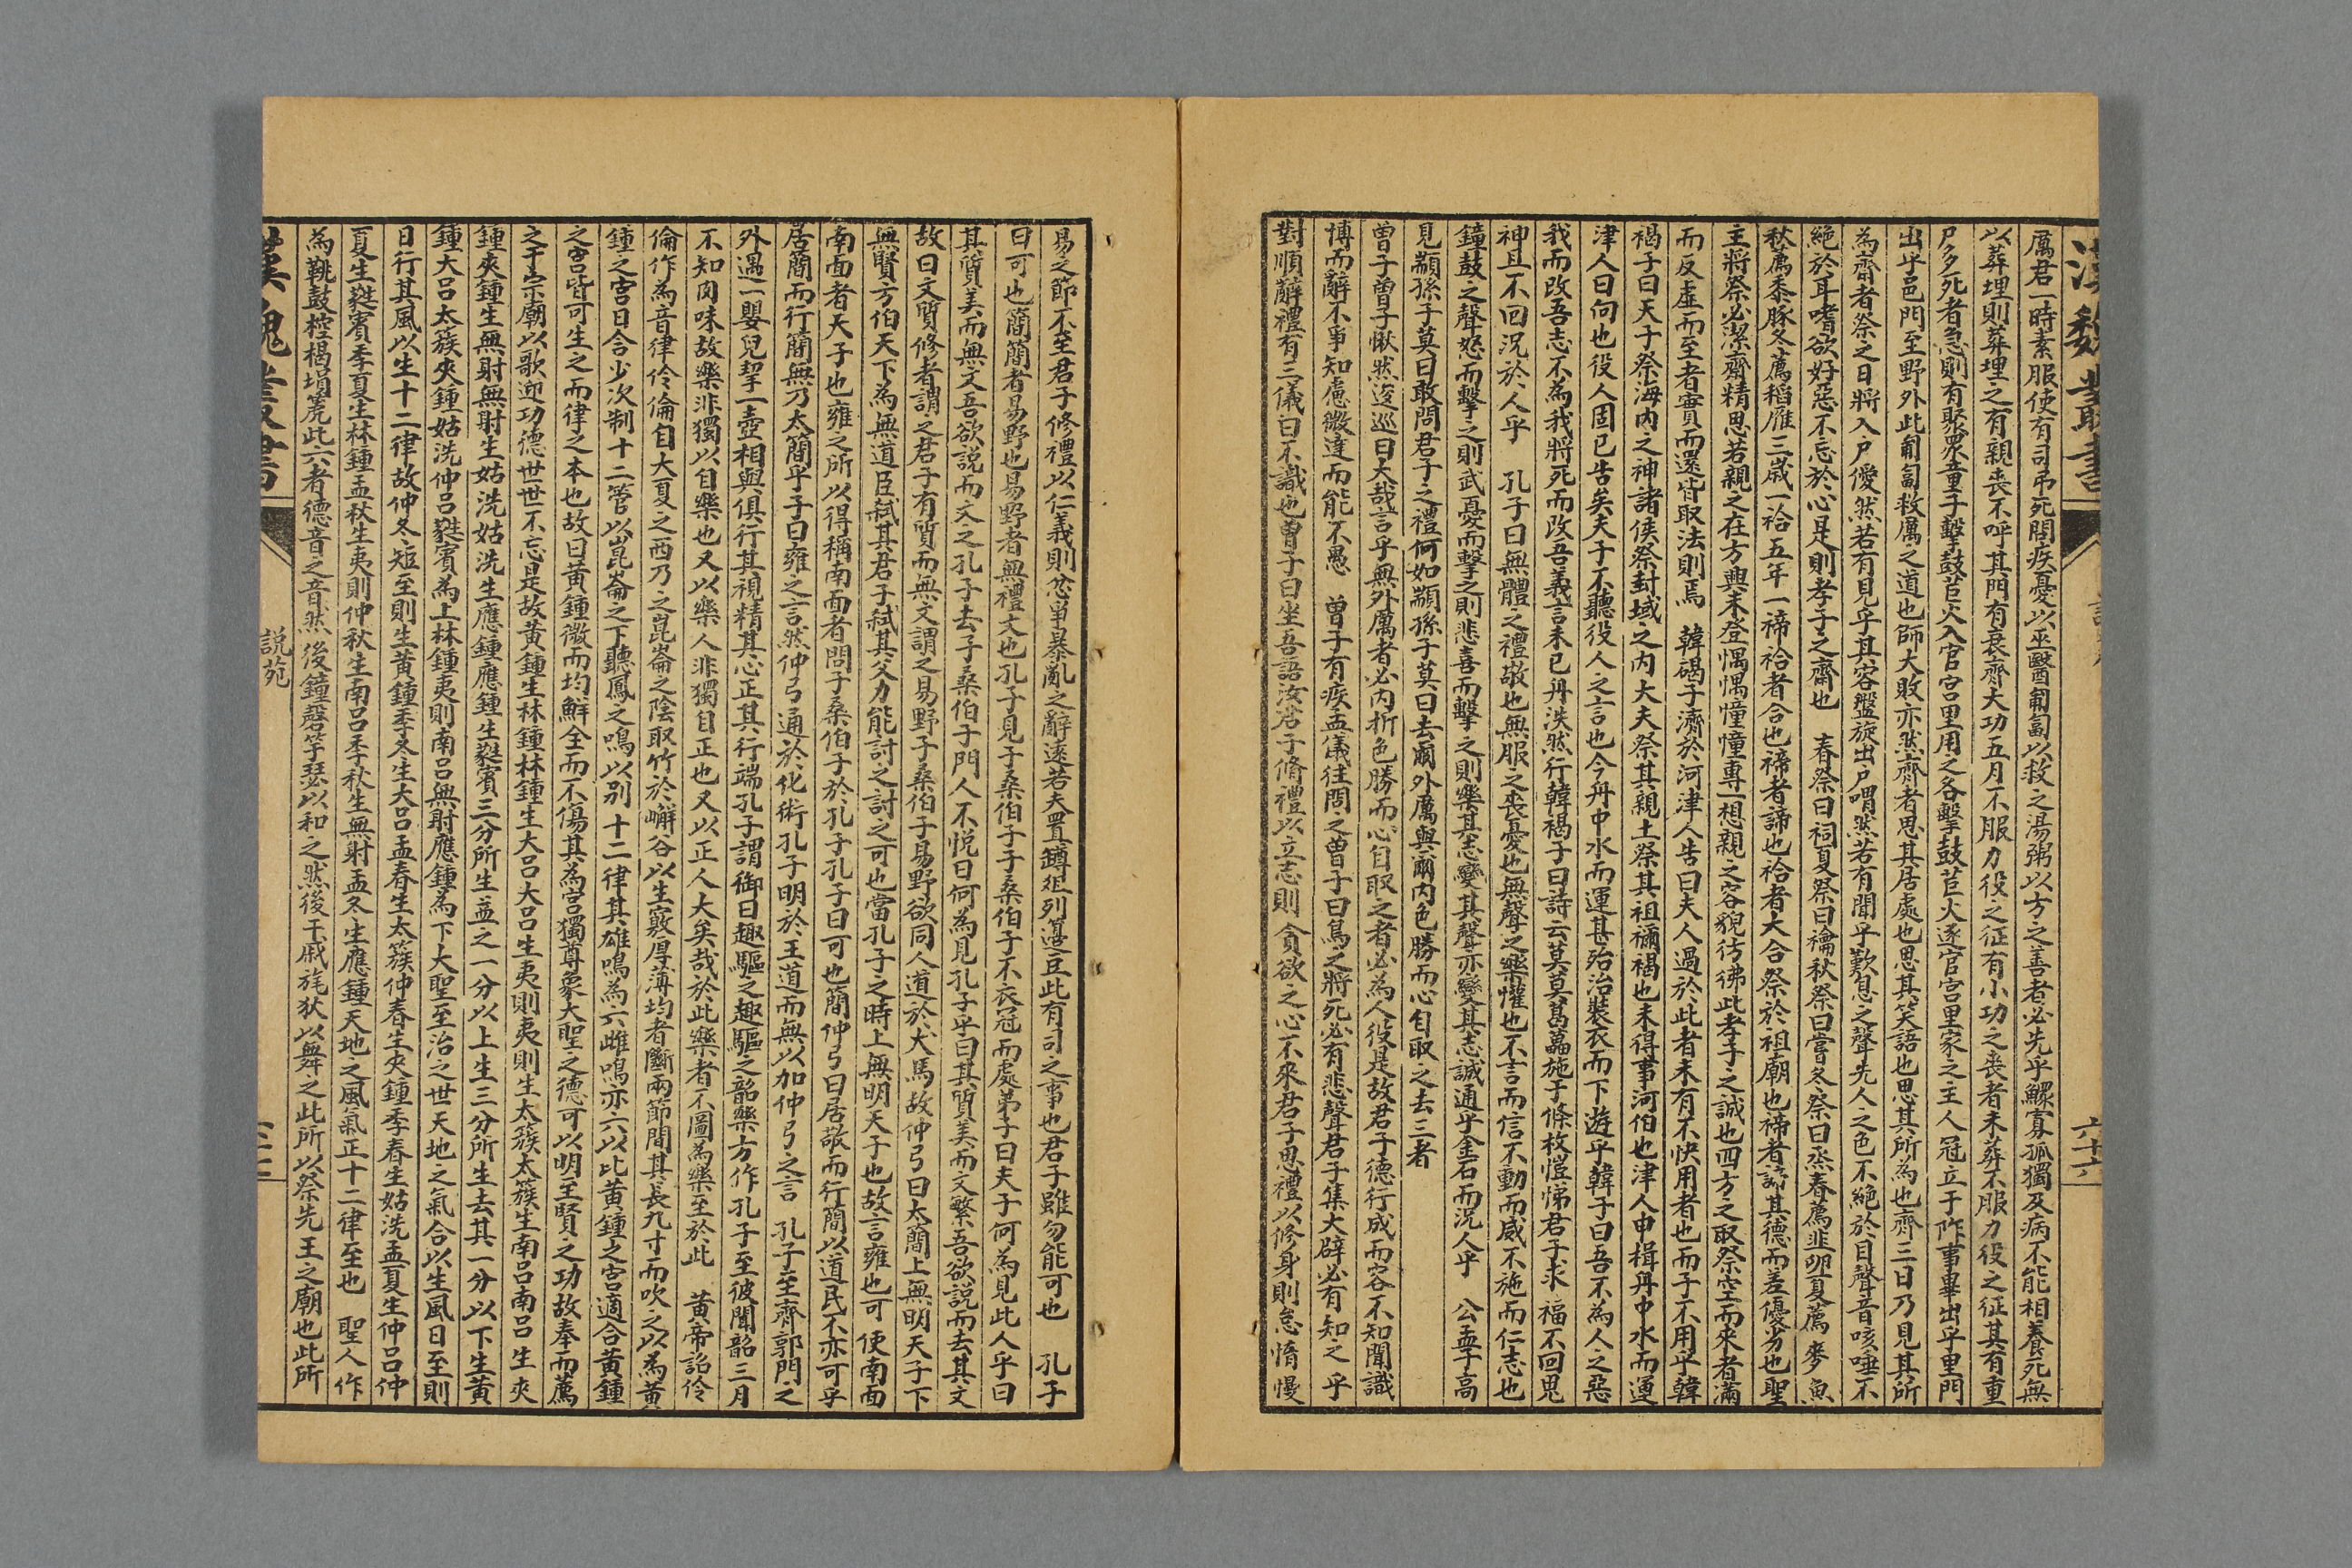 漢魏叢書
六十六
厲君一時素服使有司弔死問疾憂以巫醫匍匐以救之湯粥以方之善者必先乎鰥寡孤獨及病不能相養死無
以葬埋則葬埋之有親喪不呼其門有衰齊大功五月不服力役之征有小功之喪者未葬不服力役之征其有重
尸多死者急則有聚眾童子擊鼓苣火入官宮里用之各擊鼓苣火逐官宮里家之主人冠立于阼事畢出乎里門
出乎邑門至野外此匍匐救厲之道也師大敗亦然齊者思其居處也思其笑語也思其所為也齊三日乃見其所
為齋者祭之日將入戶僾然若有見乎其容盤旋出戶喟然若有聞乎歎息之聲先人之色不絕於目聲音咳唾不
絕於耳嗜欲好惡不忘於心是則孝子之齋也　春祭曰祠夏祭曰禴秋祭曰嘗冬祭曰烝春薦韭卵夏薦麥魚
秋薦黍豚冬薦稻雁三歲一祫五年一禘祫者合也禘者諦也祫者大合祭於祖廟也禘者諦其德而差優劣也聖
主將祭必潔齋精思若親之在方興未登惆惆憧憧專一想親之容貌彷彿此孝子之誠也四方之取祭空而來者滿
而反虛而至者實而還皆取法則焉　韓碣子濟於河津人告曰夫人過於此者未有不快用者也而子不用乎韓
褐子曰天子祭海內之神諸侯祭封域之內大夫祭其親士祭其祖禰褐也未得事河伯也津人申楫舟中水而運
津人曰向也役人固已告矣夫子不聽役人之言也今舟中水而運甚殆治裝衣而下遊乎韓子曰吾不為人之惡
我而改吾志不為我將死而改吾義言未已舟泆然行韓褐子曰詩云莫莫葛藟施于條枚愷悌君子求福不回鬼
神且不回況於人乎　孔子曰無體之禮敬也無服之喪憂也無聲之樂懽也不言而信不動而威不施而仁志也
鐘鼓之聲怒而擊之則武憂而擊之則悲喜而擊之則樂其志變其聲亦變其志誠通乎金石而況人乎　公孟子高
見顓孫子莫曰敢問君子之禮何如顓孫子莫曰去爾外厲與爾內色勝而心自取之去三者
曾子曾子愀然逡巡曰大哉言乎無外厲者必內折色勝而心自取之者必為人役是故君子德行成而容不知聞識
博而辭不爭知慮微達而能不愚　曾子有疾孟儀往問之曾子曰鳥之將死必有悲聲君子集大辟必有知之乎
對順辭禮有三儀曰不識也曾子曰坐吾語汝君子脩禮以立志則貪欲之心不來君子思禮以修身則怠惰慢
易之節不至君子修禮以仁義則忿爭暴亂之辭遠若夫置罇俎列籩豆此有司之事也君子雖勿能可也　孔子
曰可也簡簡者易野也易野者無禮文也孔子見子桑伯子子桑伯子不衣冠而處弟子曰夫子何為見此人乎曰
其質美而無文吾欲說而文之孔子去子桑伯子門人不悅曰何為見孔子乎曰其質美而文繁吾欲說而去其文
故曰文質修者謂之君子有質而無文謂之易野子桑伯子易野欲同人道於犬馬故仲弓曰太簡上無明天子下
無賢方伯天下為無道臣弒其君子弒其父力能討之討之可也當孔子之時上無明天子也故言雍也可　使南面
南面者天子也雍之所以得稱南面者問子桑伯子於孔子孔子曰可也簡仲弓曰居敬而行簡以道民不亦可乎
居簡而行簡無乃太簡乎子曰雍之言然仲弓通於化術孔子明於王道而無以加仲弓之言　孔子至齊郭門之
外遇一嬰兒挈一壺相與俱行其視精其心正其行端孔子謂御曰趣驅之趣驅之韶樂方作孔子至彼聞韶三月
不知肉味故樂非獨以自樂也又以樂人非獨自正也又以正人大矣哉於此樂者不圖為樂至於此　黃帝詔伶
倫作為音律伶倫自大夏之西乃之崑崙之陰取竹於嶰谷以生竅厚薄均者斷兩節間其長九寸而吹之以為黃
鍾之宮曰含少次制十二管以崑崙之下聽鳳之鳴以別十二律其雄鳴為六雌鳴亦六以比黃鍾之宮適合黃鍾
之宮皆可生之而律之本也故曰黃鍾微而均鮮全而不傷其為宮獨尊象大聖之德可以明至賢之功故奉而薦
之于宗廟以歌迎功德世世不忘是故黃鍾生林鍾林鍾生大呂大呂生夷則夷則生太簇太簇生南呂南呂生夾
鍾夾鍾生無射無射生姑洗姑洗生應鍾應鍾生蕤賓三分所生益之一分以上生三分所生去其一分以下生黃
鍾大呂太簇夾鍾姑洗仲呂蕤賓為上林鍾夷則南呂無射應鍾為下大聖至治之世天地之氣合以生風日至則
日行其風以生十二律故仲冬短至則生黃鍾季冬生大呂孟春生太簇仲春生夾鍾季春生姑洗孟夏生仲呂仲
夏生蕤賓季夏生林鍾孟秋生夷則仲秋生南呂季秋生無射孟冬生應鍾天地之風氣正十二律至也　聖人作
為鞉鼓椌楬塤箎此六者德音之音然後鐘磬竽瑟以和之然後干戚旄狄以舞之此所以祭先王之廟也此所
漢魏叢書
說苑